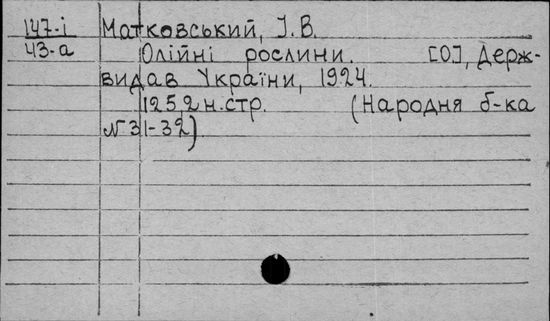 147-i Матковський, І.В.
43-а Олійні рослини. [О], Держ-
видав України, 1924.
125,2 н.стр. (Народня б-ка
№ 31-32)